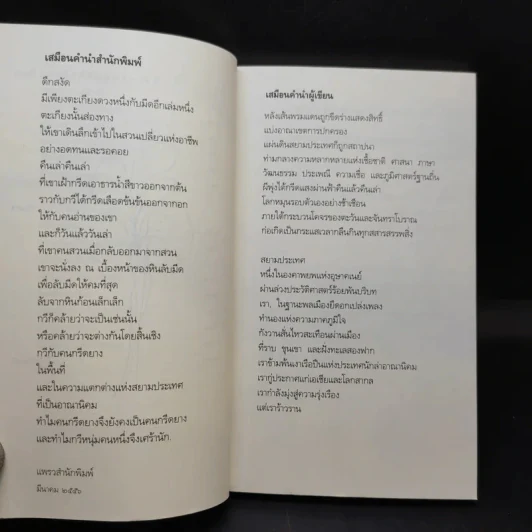 เสมือนคำนำสำนักพิมพ์
ดึกสงัด
มีเพียงตะเกียงดวงหนึ่งกับมีดอีกเล่มหนึ่ง
ตะเกียงนั้นส่องทาง
ให้เขาเดินลึกเข้าไปในสวนเปลี่ยวแห่งอาชีพ
อย่างอดทนและรอคอย
คืนเล่าคืนเล่า
ที่เขาเฝ้ากรีดเอาธารน้ำสีขาวออกจากต้น
ราวกับกวีได้กรีดเลือดข้นข้นออกจากอก
ให้กับคนอ่านของเขา
และก็วันแล้ววันเล่า
ที่เขาคนสวนเมื่อกลับออกมาจากสวน
เขาจะนั่งลง ณ เบื้องหน้าของหินลับมีด
เพื่อลับมีดให้คมที่สุด
ลับจากหินก้อนเล็กเล็ก
กวีก็คล้ายว่าจะเป็นเช่นนั้น
หรือคล้ายว่าจะต่างกันโดยสิ้นเชิง
กวีกับคนกรีดยาง
ในพื้นที่
และในความแตกต่างแห่งสยามประเทศ
ที่เป็นอาณานิคม
ทำไมคนกรีดยางจึงยังคงเป็นคนกรีดยาง
และทำไมกวีหนุ่มคนหนึ่งจึงเศร้านัก.
แพรวสำนักพิมพ์
มีนาคม ๒๕๕๖
เสมือนคำนำผู้เขียน
หลังเส้นพรมแดนถูกขีดร่างแสดงสิทธิ์
แบ่งอาณาเขตการปกครอง
แผ่นดินสยามประเทศก็ถูกสถาปนา
ท่ามกลางความหลากหลายแห่งเชื้อชาติ ศาสนา ภาษา
วัฒนธรรม ประเพณี ความเชื่อ และภูมิศาสตร์ฐานถิ่น
ผีพุ่งใต้กรีดแสงผ่านฟ้าคืนแล้วคืนเล่า
โลกหมุนรอบตัวเองอย่างซ้ำเชือน
ภายใต้กระบวนโคจรของตะวันและจันทราโบราณ
ก่อเกิดเป็นกระแสเวลากลืนกินทุกสสารสรรพสิ่ง
สยามประเทศ
หนึ่งในองคาพยพแห่งอุษาคเนย์
ผ่านล่วงประวัติศาสตร์ร้อยพันบริบท
เรา, ในฐานะพลเมืองยืดอกเปล่งเพลง
ทำนองแห่งความภาคภูมิใจ
กังวานสั่นไหวสะเทือนผ่านเมือง
ที่ราบ ขุนเขา และฝั่งทะเลสองฟาก
เราข้ามพ้นเงาเรือปืนแห่งประเทศนักล่าอาณานิคม
เรากู่ประกาศแก่เอเชียและโลกสากล
เรากำลังมุ่งสู่ความรุ่งเรือง
แต่เราร้าวราน